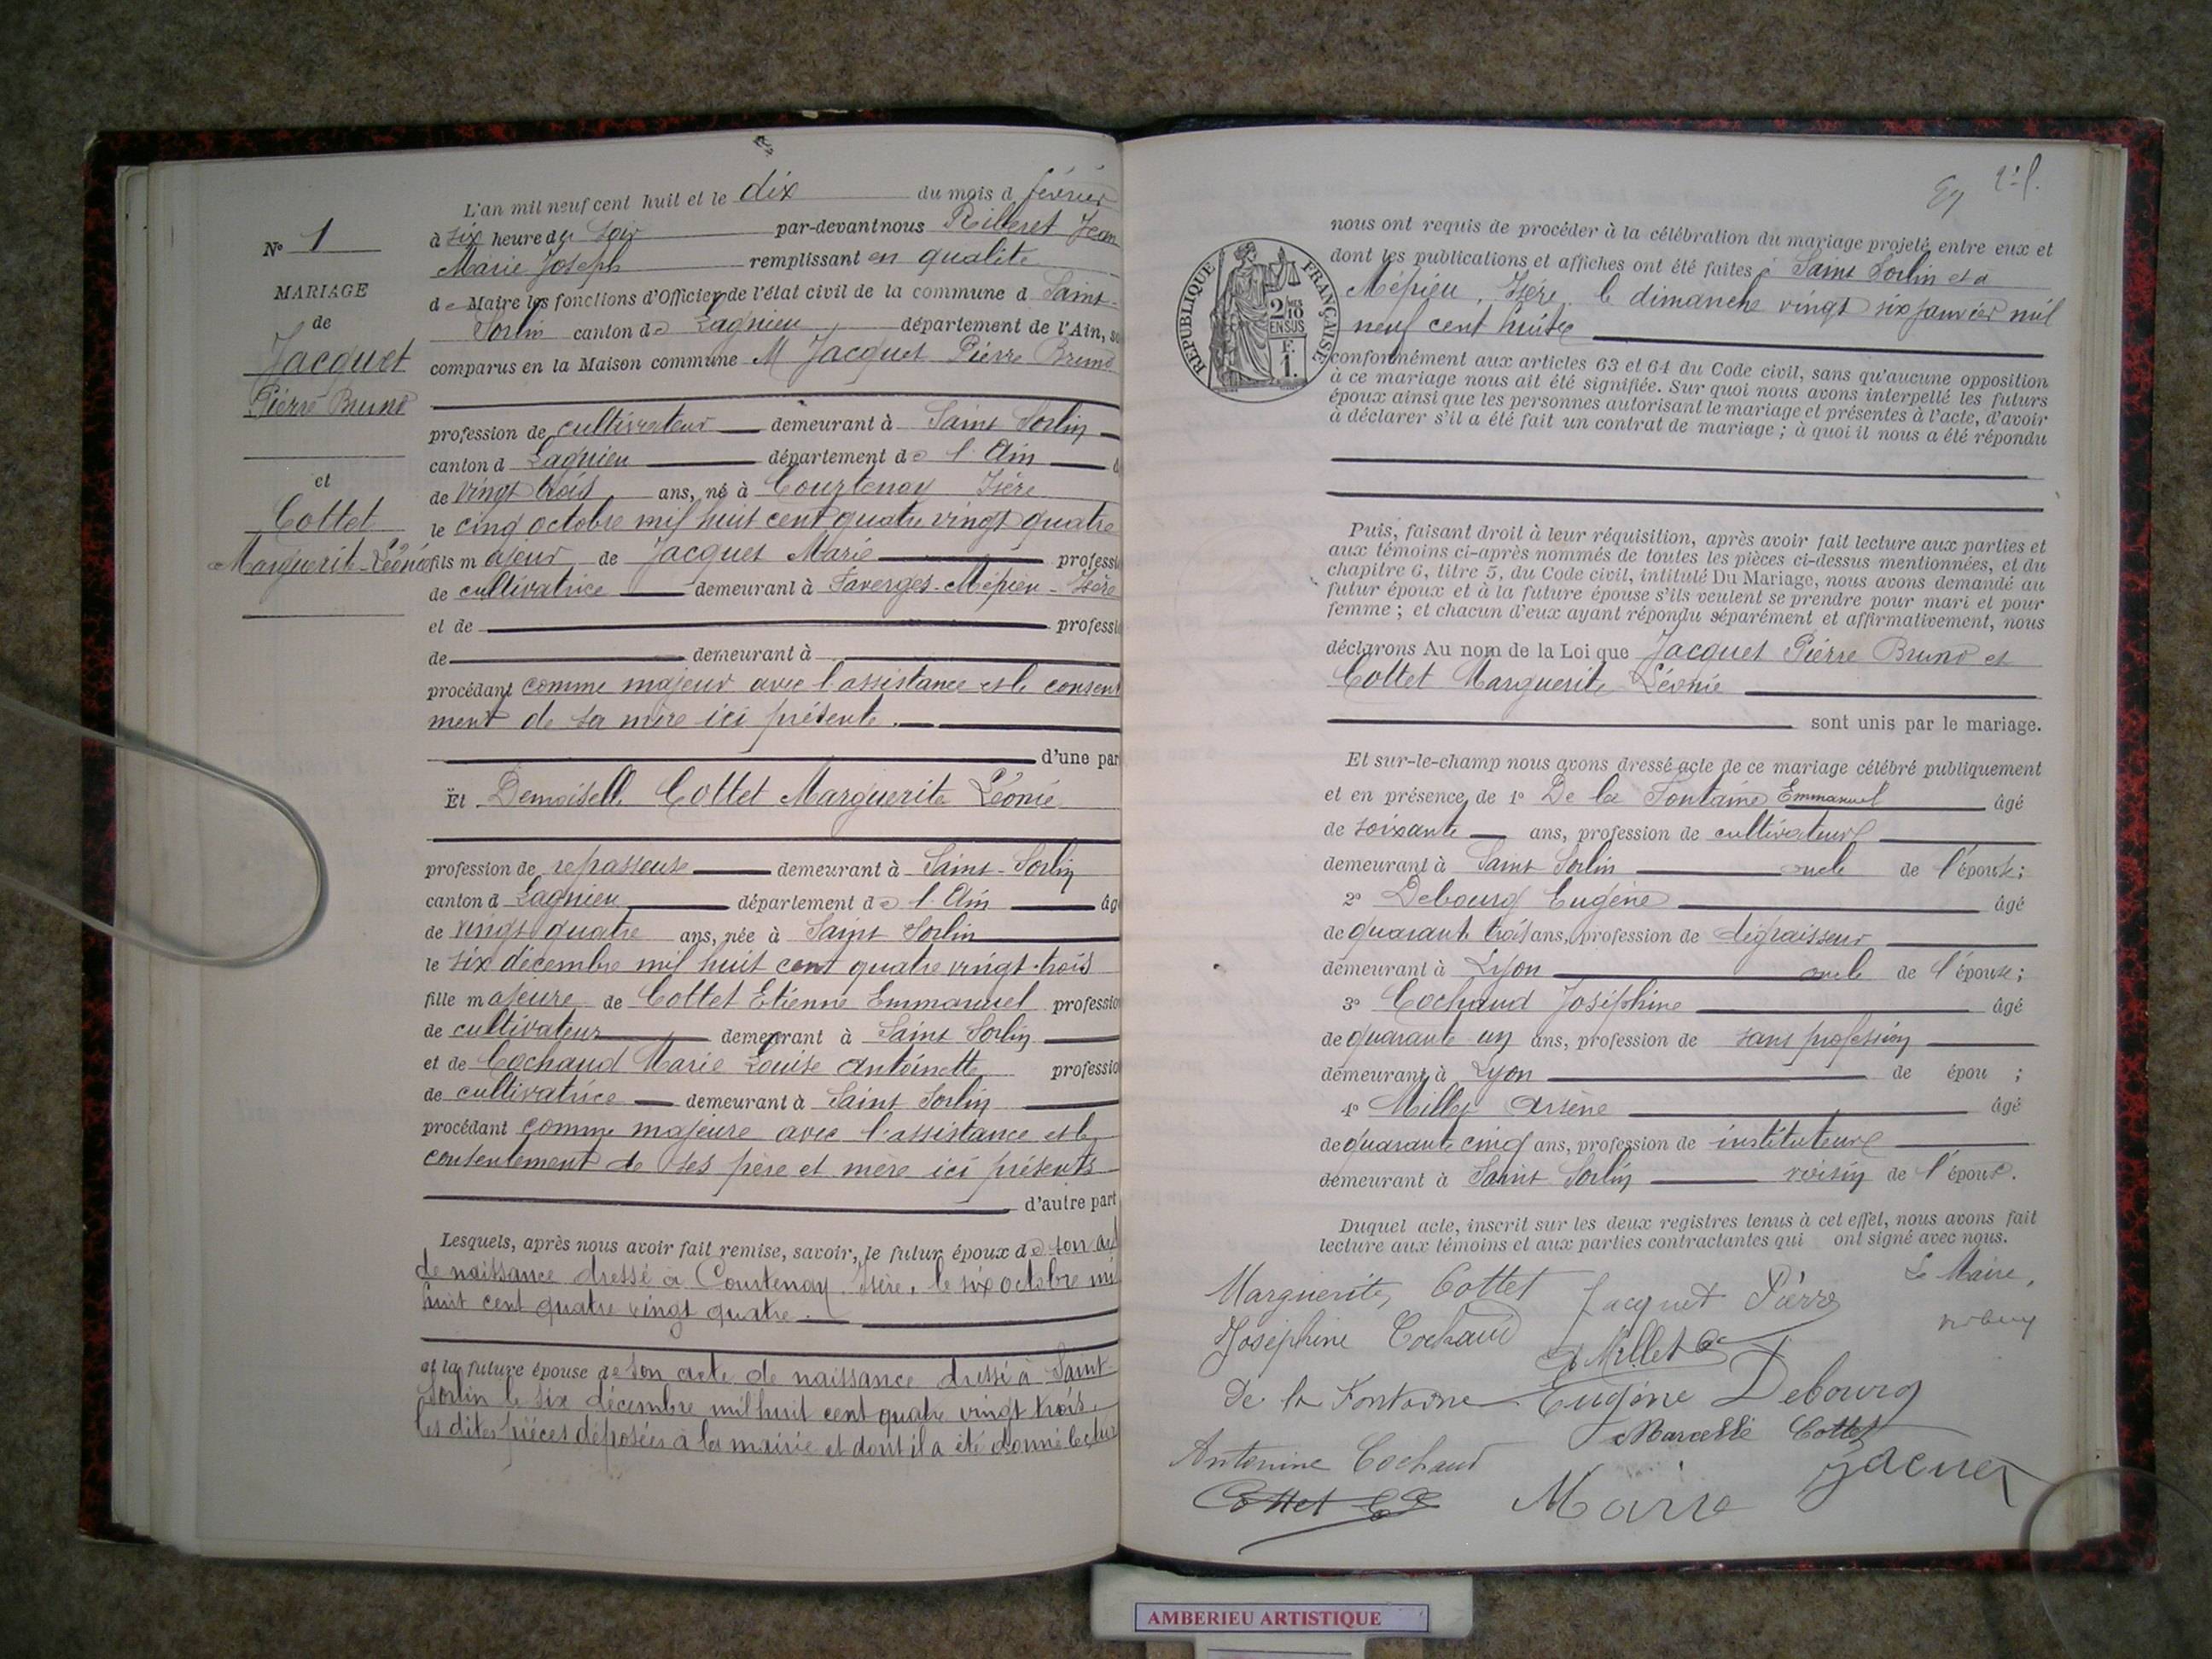 L'an mil neuf cent huit et le dix du mois d février
à six heure du soir par-devant nous Riberet Jean
Marie Joseph remplissant en qualité
de Maire les fonctions d'Officier de l'état civil de la commune d Saint-
Sorlin canton de Lagnieu département de l'Ain,
comparus en la Maison commune M Jacquet Pierre Bruno
N° 1
MARIAGE
de
Jacquet
Pierre Bruno
et
Cottet
Marguerite Léonie
profession de cultivateur demeurant à Saint Sorlin
canton d Lagnieu département de l'Ain
de vingt trois ans, né à Courtenay Isère
le cinq octobre mil huit cent quatre vingt quatre
fils majeur de Jacquet Marie professi
de cultivatrice demeurant à Faverges-Mépieu-Isère
et de professi
de demeurant à
procédant comme majeur avec l'assistance et le consent
ment de sa mère ici présente.
d'une par
Et Demoiselle Cottet Marguerite Léonie
profession de repasseuse demeurant à Saint-Sorlin
canton d Lagnieu département de l'Ain âg
de vingt quatre ans, née à Saint Sorlin
le six décembre mil huit cent quatre vingt trois
fille majeure de Cottet Etienne Emmanuel professio
de cultivateur demeurant à Saint Sorlin
et de Cochaud Marie Louise Antoinette professio
de cultivatrice demeurant à Saint Sorlin
procédant comme majeure avec l'assistance et le
consentement de ses père et mère ici présents
d'autre part
Lesquels, après nous avoir fait remise, savoir, le futur époux de son act
de naissance dressé à Courtenay Isère, le six octobre mil
huit cent quatre vingt quatre.
et la future épouse de son acte de naissance dressé à Saint-
Sorlin le six décembre mil huit cent quatre vingt trois,
les dites pièces déposées à la mairie et dont il a été donné lectur
2e f.
nous ont requis de procéder à la célébration du mariage projeté entre eux et
dont les publications et affiches ont été faites à Saint Sorlin et à
Mépieu, Isère, le dimanche vingt six janvier mil
neuf cent huit
RÉPUBLIQUE FRANÇAISE
2/10
EN SUS
F.
1.
conformément aux articles 63 et 64 du Code civil, sans qu'aucune opposition
à ce mariage nous ait été signifiée. Sur quoi nous avons interpellé les futurs
époux ainsi que les personnes autorisant le mariage et présentes à l'acte, d'avoir
à déclarer s'il a été fait un contrat de mariage ; à quoi il nous a été répondu
Puis, faisant droit à leur réquisition, après avoir fait lecture aux parties et
aux témoins ci-après nommés de toutes les pièces ci-dessus mentionnées, et du
chapitre 6, titre 5, du Code civil, intitulé Du Mariage, nous avons demandé au
futur époux et à la future épouse s'ils veulent se prendre pour mari et pour
femme ; et chacun d'eux ayant répondu séparément et affirmativement, nous
déclarons Au nom de la Loi que Jacquet Pierre Bruno et
Cottet Marguerite Léonie
sont unis par le mariage.
Et sur-le-champ nous avons dressé acte de ce mariage célébré publiquement
et en présence de 1° De la Fontaine Emmanuel âgé
de soixante ans, profession de cultivateur
demeurant à Saint Sorlin oncle de l'épouse;
2° Debourg Eugène âgé
de quarante trois ans, profession de dégraisseur
demeurant à Lyon oncle de l'épouse;
3° Cochaud Joséphine âgé
de quarante un ans, profession de sans profession
demeurant à Lyon de épou ;
4° Millet Arsène âgé
de quarante cinq ans, profession de instituteur
demeurant à Saint Sorlin voisin de l'épouse.
Duquel acte, inscrit sur les deux registres tenus à cet effet, nous avons fait
lecture aux témoins et aux parties contractantes qui ont signé avec nous.
Marguerite Cottet Jacquet Pierre Le Maire,
Joséphine Cochaud
A Millet
De la Fontaine Eugène Debourg
Marcelle Cottet
Antonine Cochaud
Cottet Marie Jacquet
AMBERIEU ARTISTIQUE